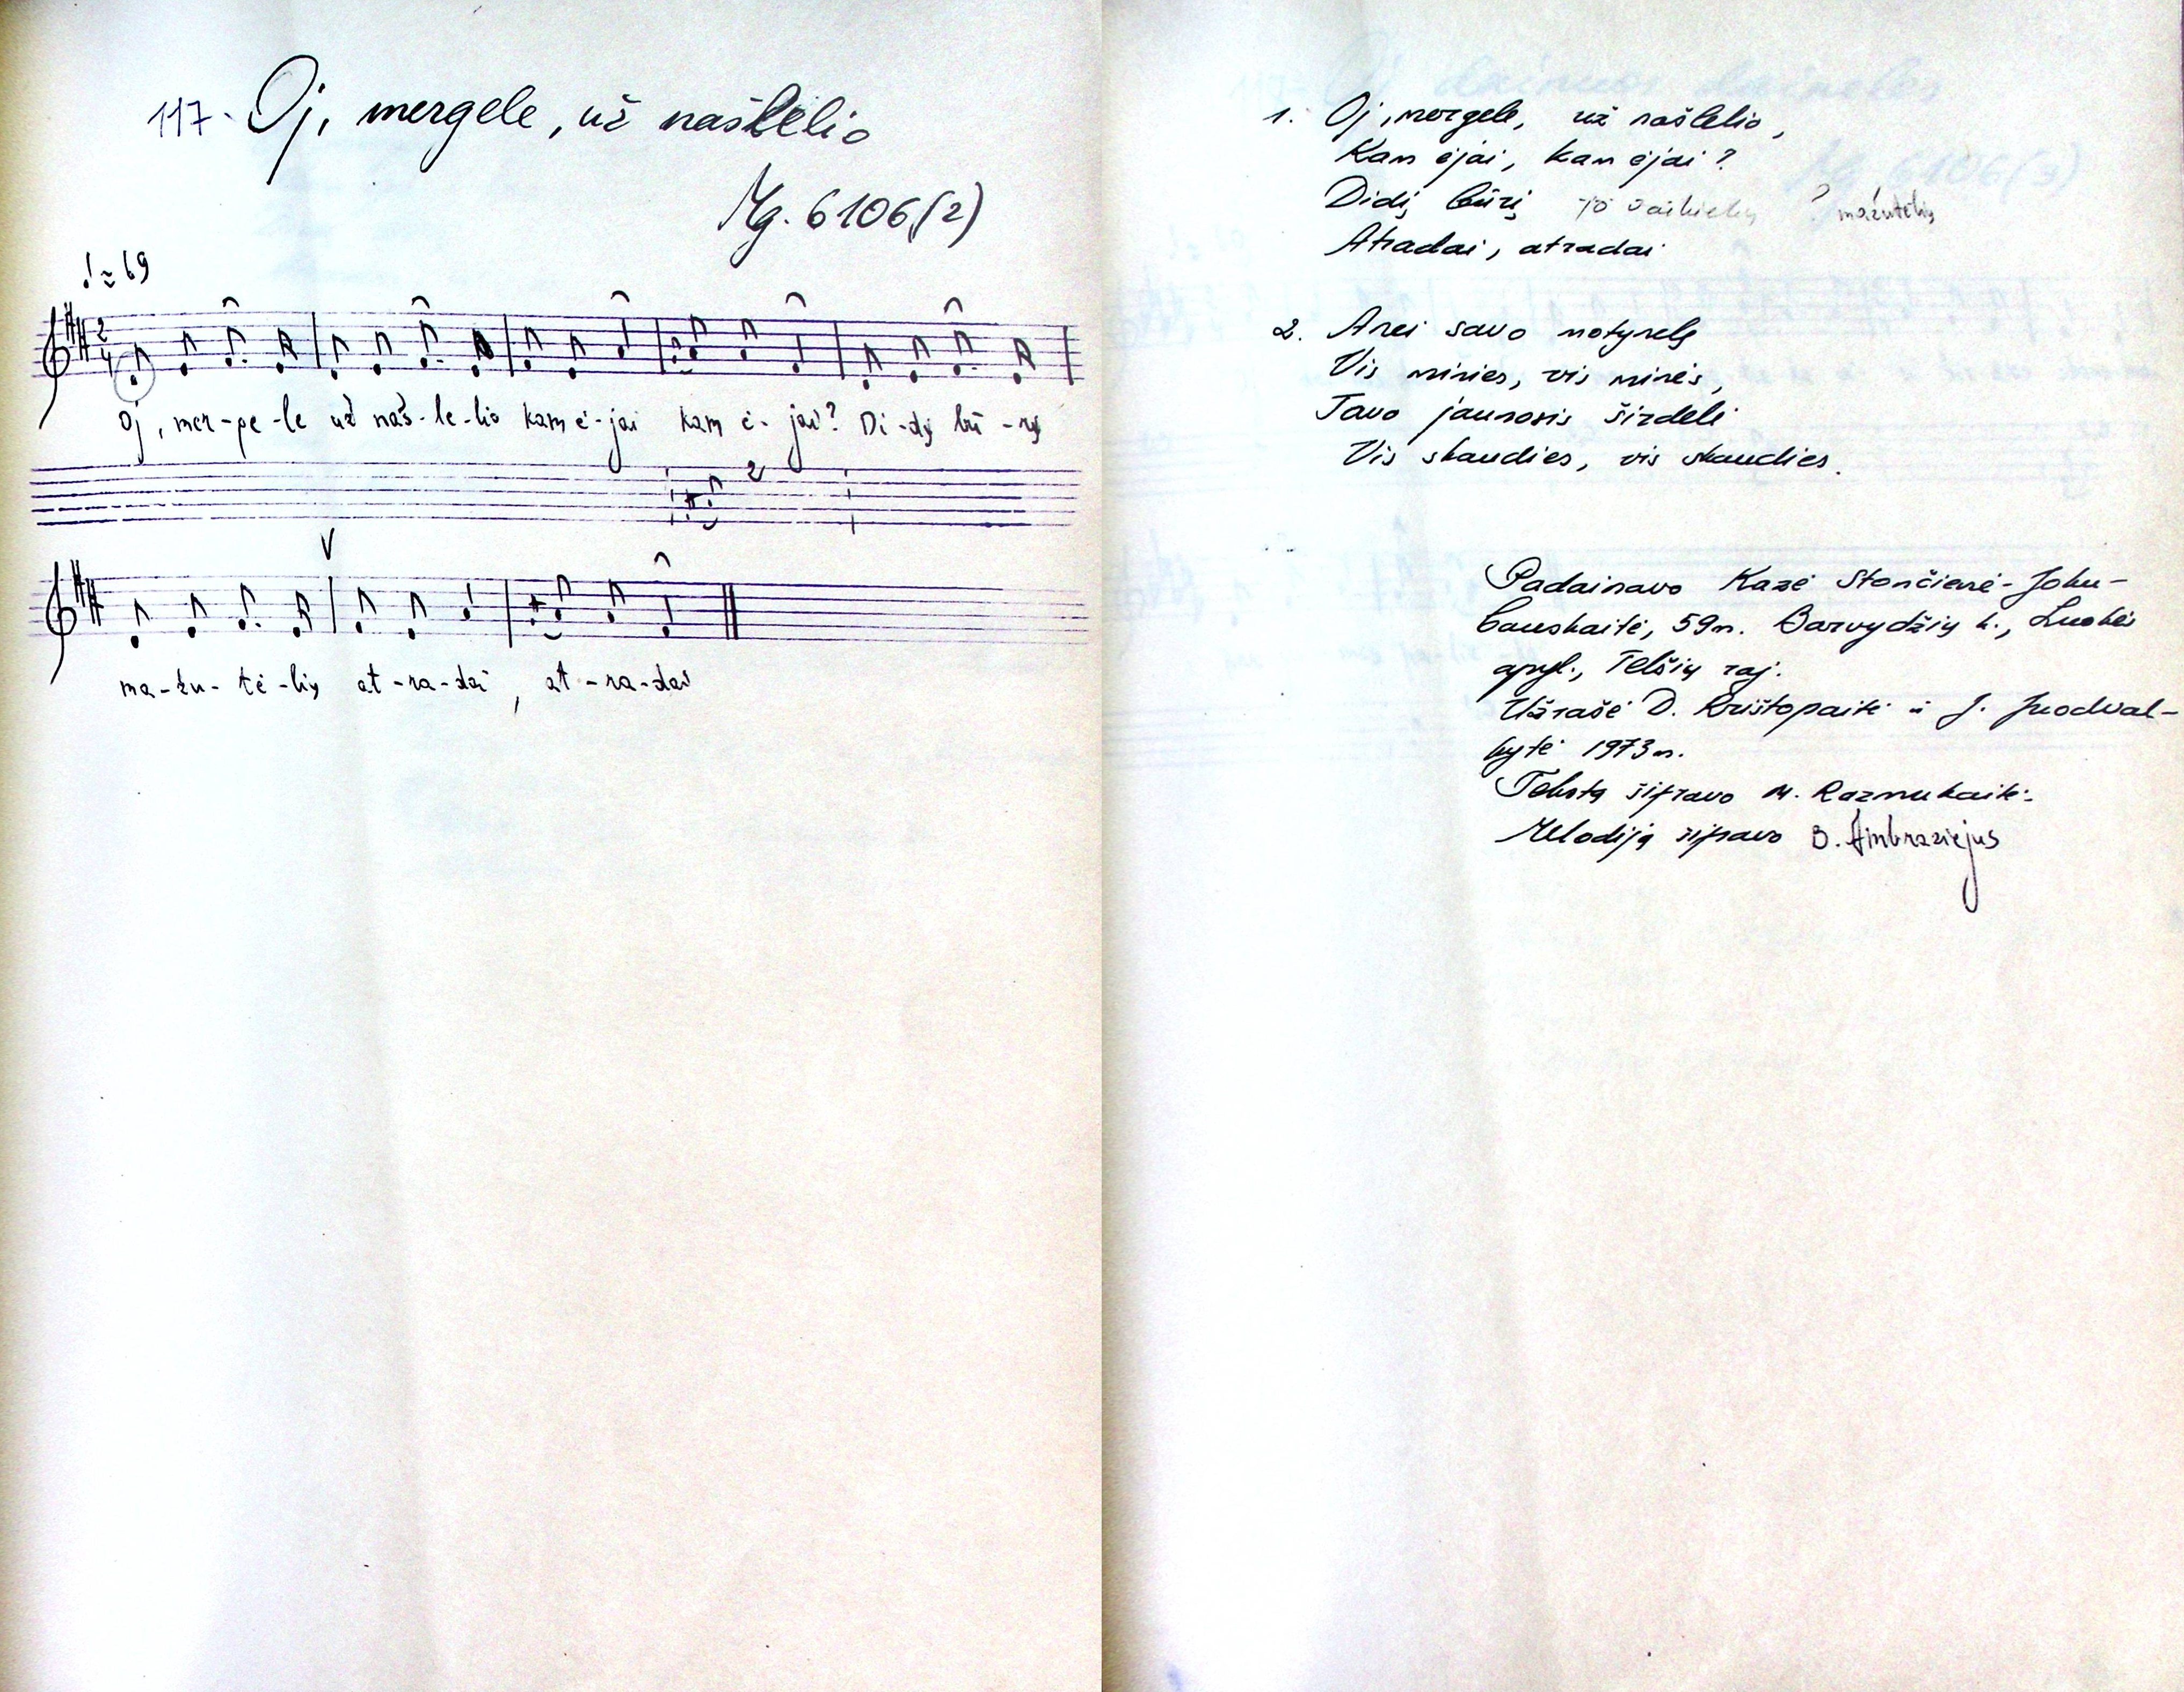 117. Oj, mergele, už našlelio
Mg. 6106(2)
♩ ≈ 69
2/4
Oj, mer-ge-le už naš-le-lio kam ė-jai kam ė-jai? Di-dį bū-rį
2
V
ma-žu-tė-lių at-ra-dai, at-ra-dai
1. Oj, mergele, už našlelio,
Kam ėjai, kam ėjai?
Didį būrį jo vaikelių ? mažutėlių
Atradai, atradai
2. Anei savo motynelę
Vis minies, vis minės,
Tavo jaunosis širdelė
Vis skaudies, vis skaudies.
Padainavo Kazė Stončienė-Joku-
bauskaitė, 59 m. Barvydžių k., Luokės
apyl., Telšių raj.
Užrašė D. Krištopaitė ir J. Juodval-
kytė 1973 m.
Tekstą šifravo M. Razmukaitė.
Melodiją šifravo B. Ambraziejus